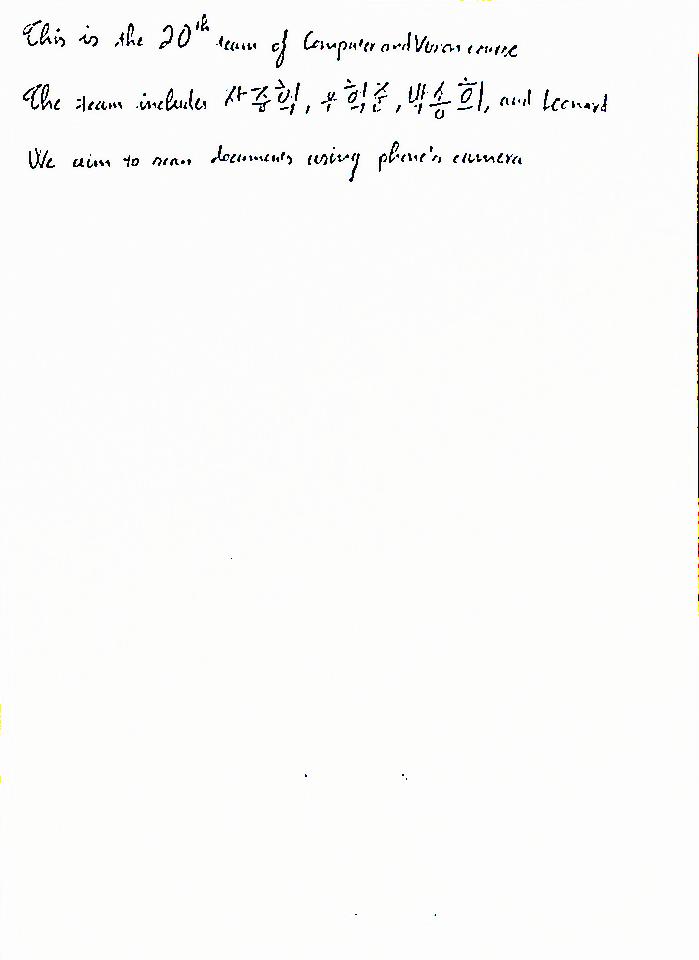 This is the 20th team of Computer and Vision course
The team includes 사종혁, 우혁준, 박승희, and Leonard
We aim to scan documents using phone's camera